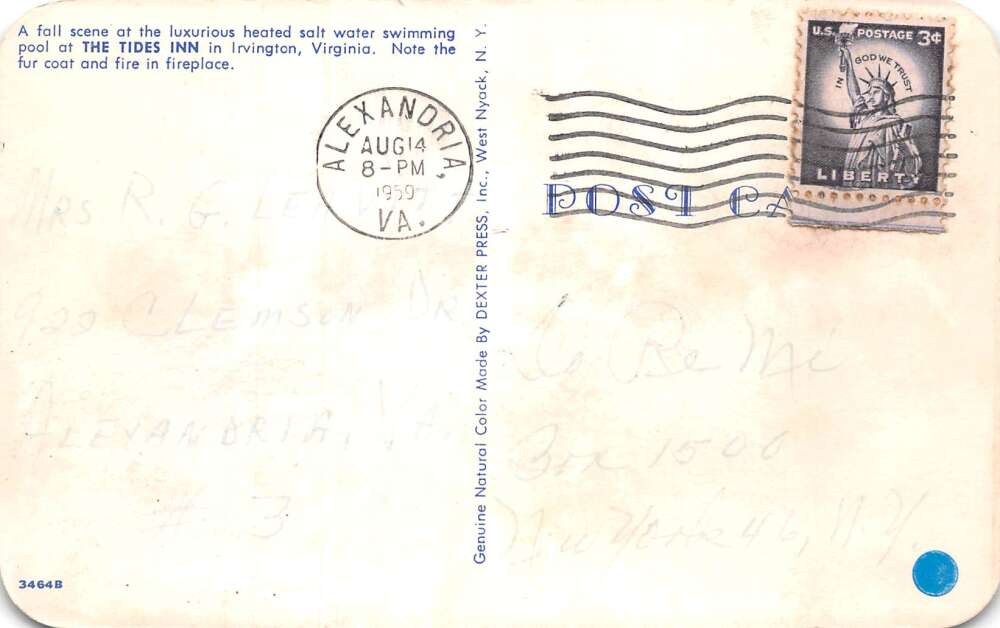 A fall scene at the luxurious heated salt water swimming
pool at THE TIDES INN in Irvington, Virginia. Note the
fur coat and fire in fireplace.
ALEXANDRIA,
AUG 14
8-PM
1959
VA.
MRS R. G.
922 CLEMSON DR
ALEXANDRIA, VA.
# 3
3464B
Genuine Natural Color Made By DEXTER PRESS, Inc., West Nyack, N. Y.
U.S. POSTAGE 3¢
IN GOD WE TRUST
LIBERTY
POST CA
Re Mi
Box 1506
New York 46, N.Y.